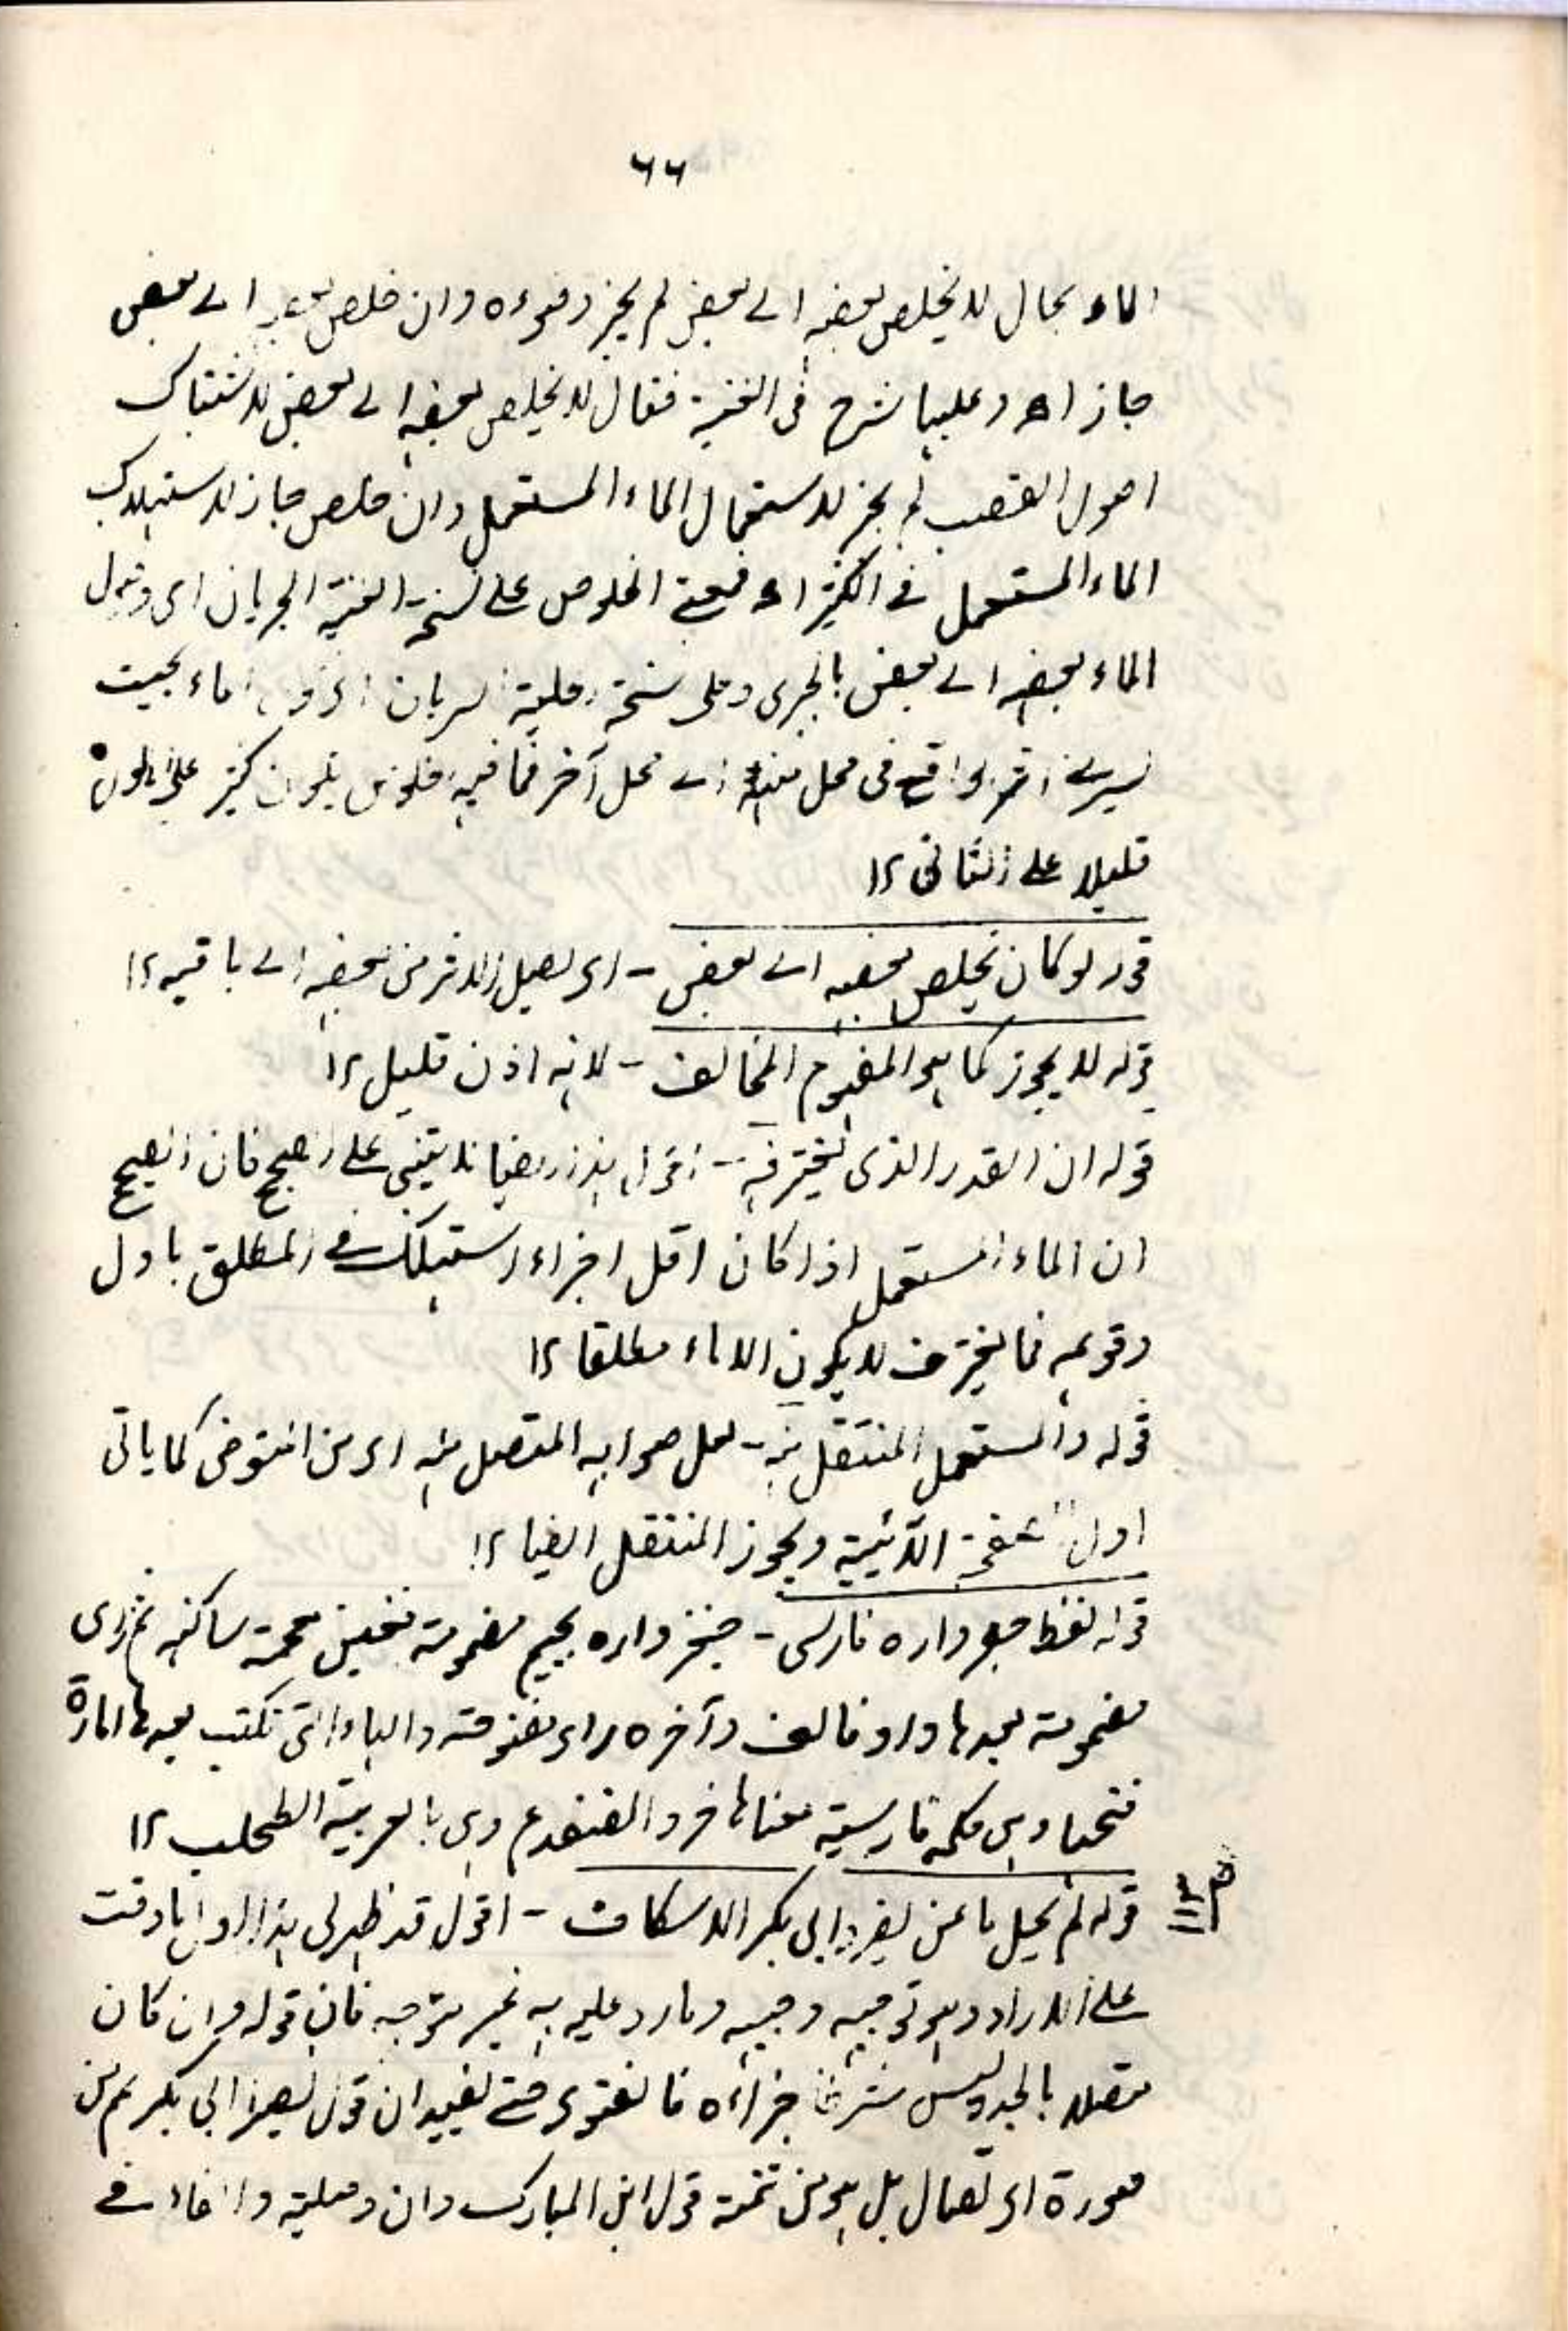 ٦٦
الماء بحال لا يخلص بعضه الى بعض لم يجز وضوءه وان خلص بعضه الى بعض
جاز اه وعليها شرح فى الغنية فقال لا يخلص بعضه الى بعض لاشتباك
اصول القصب لم يجز لاستعمال الماء المستعمل وان خلص جاز لاستهلاك
الماء المستعمل فى الكثير اه فمعنى الخلوص على نسخة الغنية الجريان اى وصول
الماء بعضه الى بعض بالجرى وعلى نسخة الحلية السريان الماء بحيث
يسرى الواقع فى محل منه الى محل آخر فما فيه خلوص يكون كثير على الاول
قليلا على الثانى ١٢
قوله لو كان يخلص بعضه الى بعض - اى يصل الاثر من بعضه الى باقيه ١٢
قوله لا يجوز كما هو المفهوم المخالف - لانه اذن قليل ١٢
قوله ان القدر الذى يغترفه - اقول هذا ايضا لا يبتنى على الصحيح فان الصحيح
ان الماء المستعمل اذا كان اقل اجزاء استهلك فى المطلق باول
وقوعه فما يغترف لا يكون الا ماء مطلقا ١٢
قوله والمستعمل المنتقل منه - لعل صوابه المتصل منه اى من المتوضى كما ياتى
اول الصفحة الآتية ويجوز المنتقل ايضا ١٢
قوله لفظ جغزواره فارسى - جغزواره بجيم مضمومة فغين معجمة ساكنة ثم زاى
مضمومة بعدها واو فالف وآخره راء مفتوحة والهاء التى تكتب بعدها امارة
فتحها وهى كلمة فارسية معناها خرء الضفدع وهى بالعربية الطحلب ١٢
قوله لم يحيل ما عن نصر وابى بكر الاسكاف - اقول قد ظهر لى هذا اول ما وقفت
على الايراد وهو توجيه وجيه وما رد عليه به غير متوجه فان قوله وان كان
متصلا بالجمد ليس شرطا جزاءه فالفتوى حتى يفيد ان قول نصر وابى بكر ثم من
صورة الاتصال بل هو من تتمة قول ابن المبارك وان وصلية والفاء فى